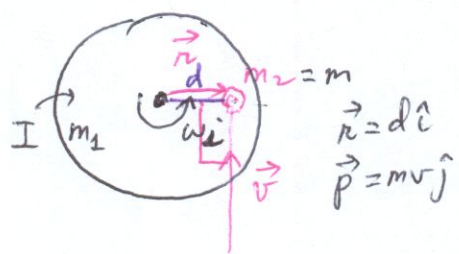 r⃗
d
m₂ = m
I
m₁
ωᵢ
v⃗
r⃗ = d î
p⃗ = m v ĵ